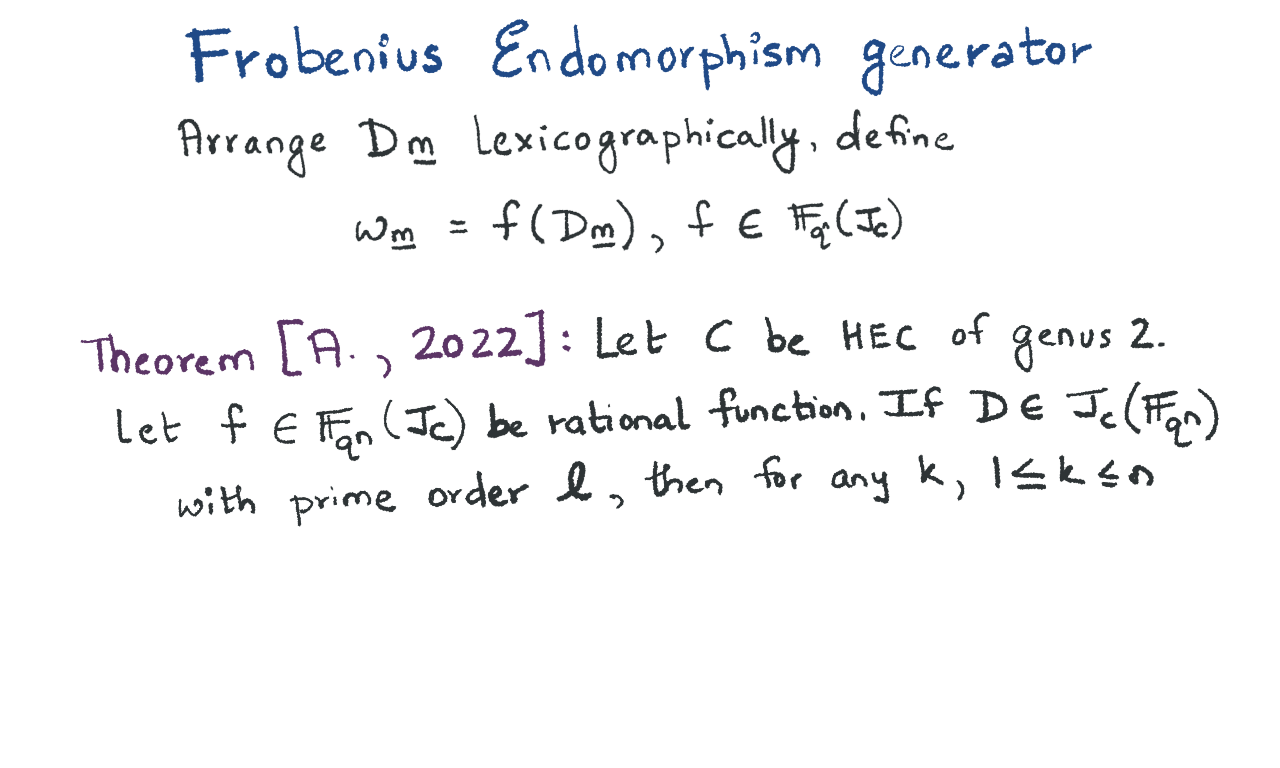 Frobenius Endomorphism generator
Arrange D_m Lexicographically, define
ω_m = f(D_m), f ∈ 𝔽_q(J_C)
Theorem [A., 2022]: Let C be HEC of genus 2.
Let f ∈ 𝔽_qn(J_C) be rational function. If D ∈ J_C(𝔽_qn)
with prime order ℓ, then for any k, 1 ≤ k ≤ n